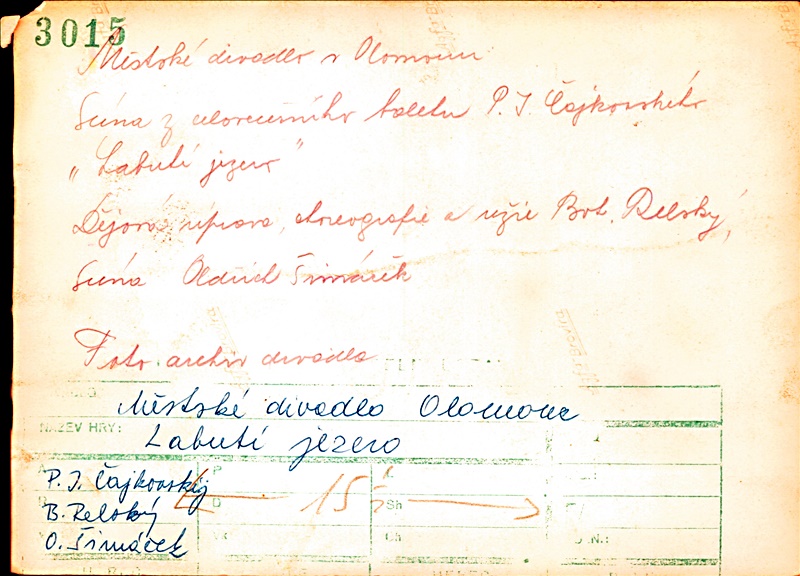 3015
Městské divadlo v Olomouci
Scéna z celovečerního baletu P. I. Čajkovského
„Labutí jezero"
Dějová úprava, choreografie a režie Boh. Relský,
Scéna Oldřich Šimáček
Foto archiv divadla
Městské divadlo Olomouc
NÁZEV HRY:
Labutí jezero
P. I. Čajkovskij
B. Relský
O. Šimáček
P
D
15
Sh
Ch